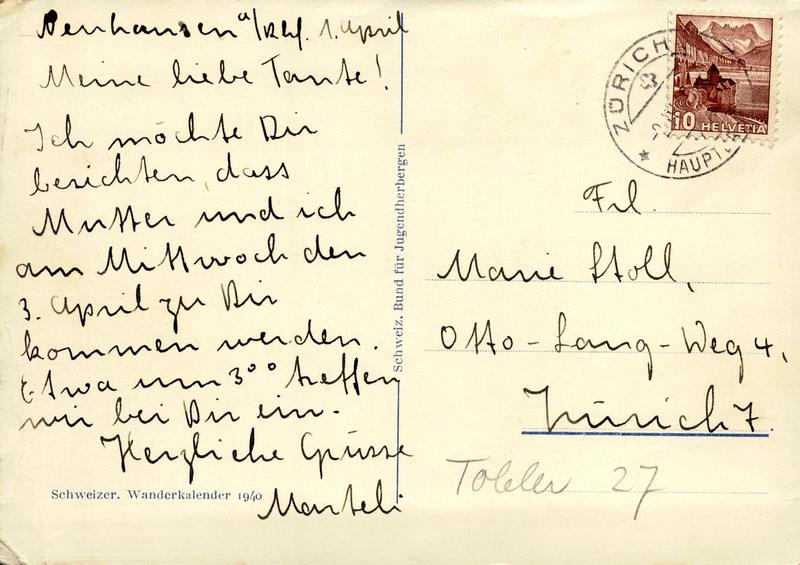 Neuhausen a/Rhf. 1. April
Meine liebe Tante!
Ich möchte Dir
berichten, dass
Mutter und ich
am Mittwoch den
3. April zu Dir
kommen werden.
Etwa um 3°° treffen
wir bei Dir ein.
Herzliche Grüsse
Schweizer. Wanderkalender 1940
Schweiz. Bund für Jugendherbergen
ZÜRICH
HAUPT
10 HELVETIA
Frl.
Marie Stoll,
Otto-Lang-Weg 4,
Zürich 7.
Tobler 27